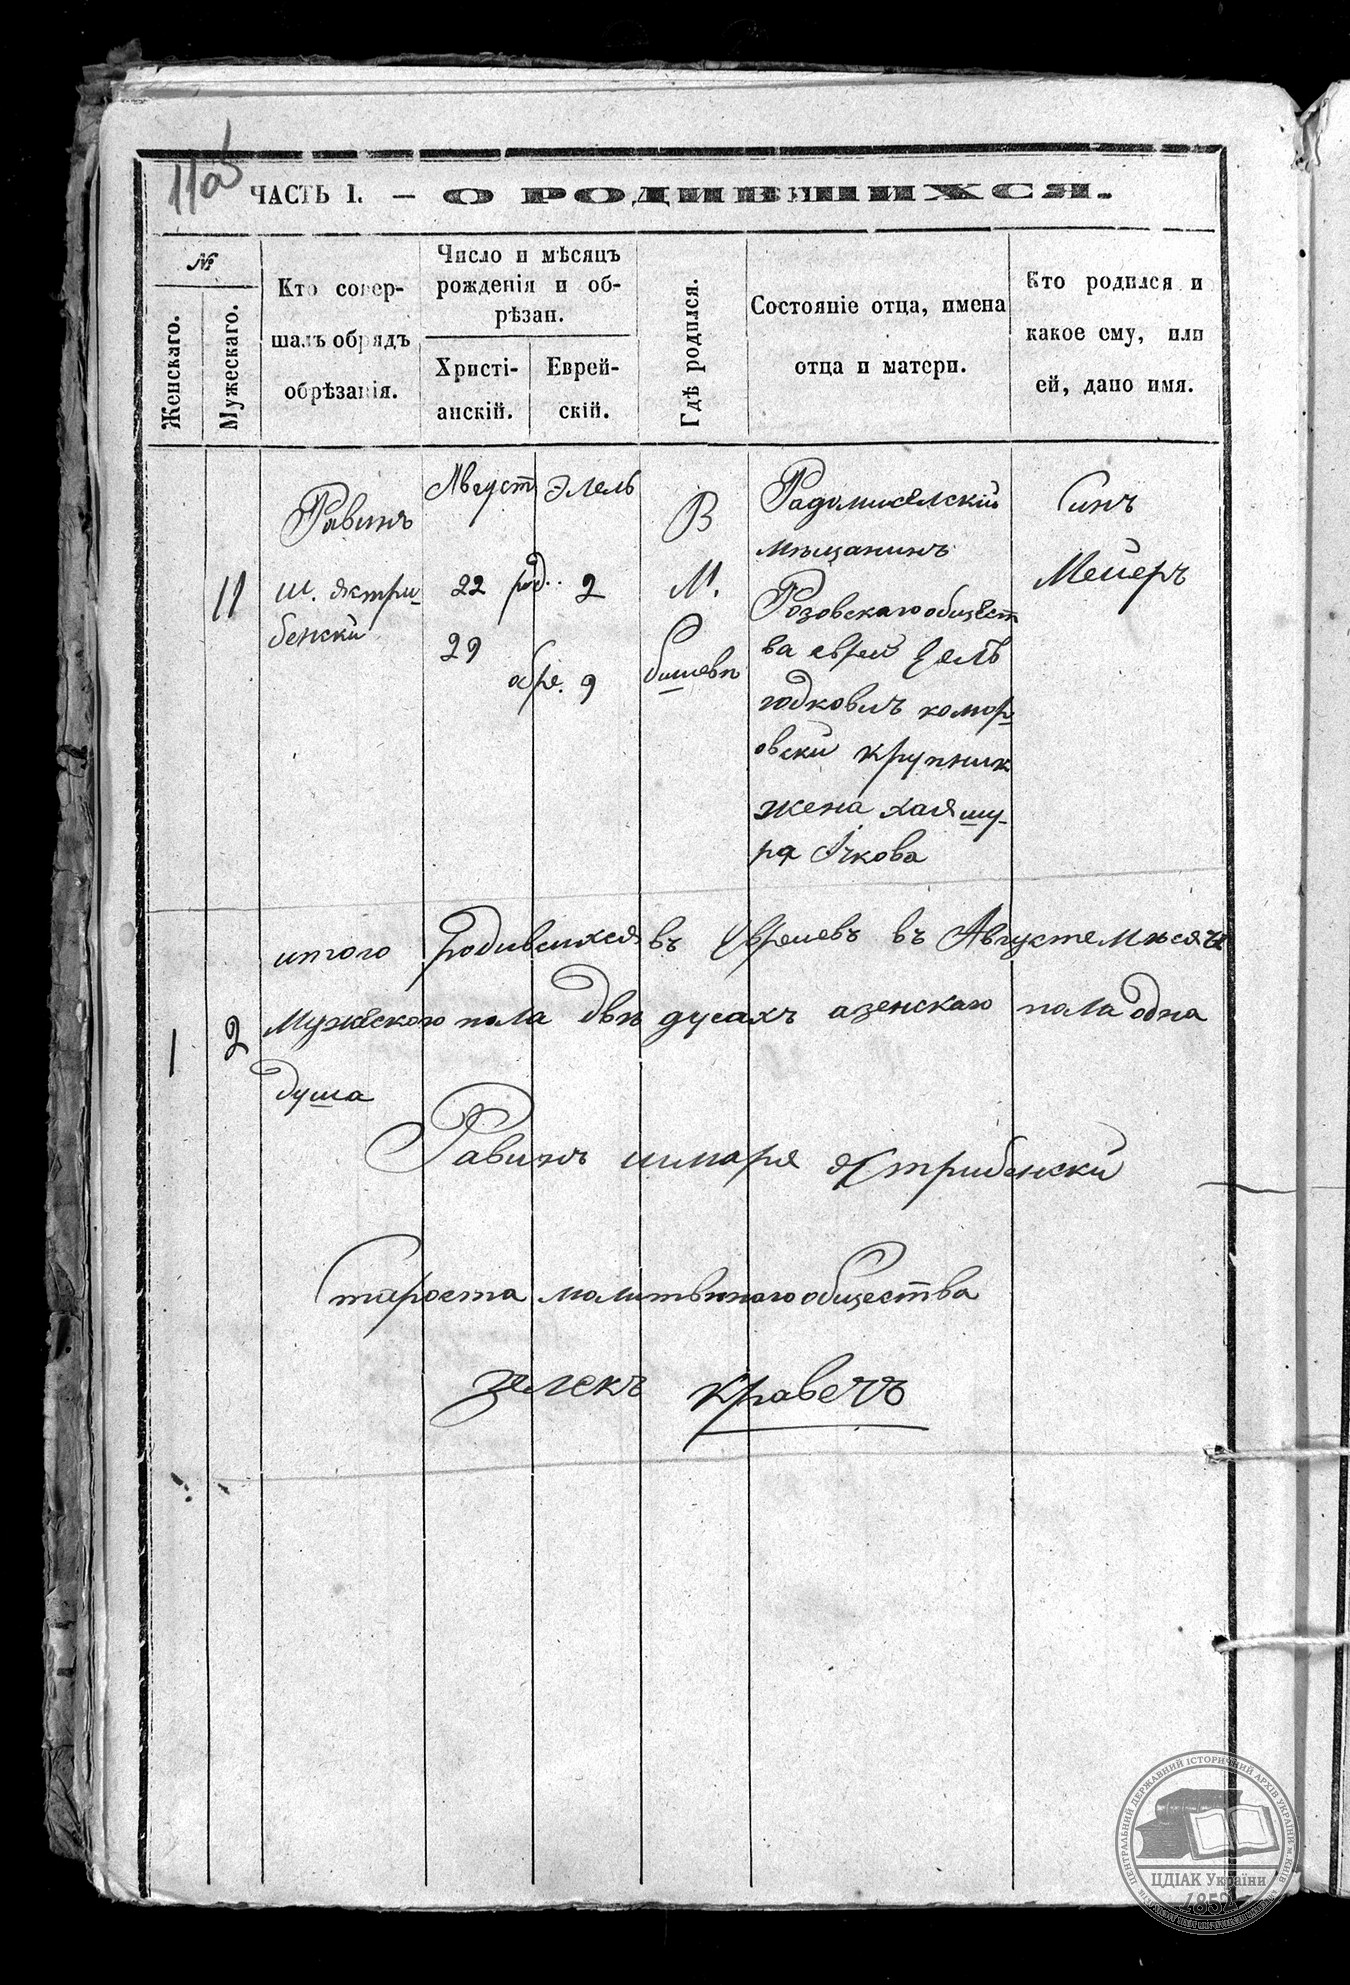 11 аб
ЧАСТЬ I. — О РОДИВШИХСЯ.
№
Женскаго.
Мужескаго.
Кто совер-
шалъ обрядъ
обрѣзанія.
Число и мѣсяцъ
рожденія и об-
рѣзан.
Христі-
анскій.
Еврей-
скій.
Гдѣ родился.
Состояніе отца, имена
отца и матери.
Кто родился и
какое ему, или
ей, дано имя.
11
Равинъ
ш. ястри-
бенски
Август
22 род.
29 обре.
Элель
2
9
В
М.
бишевѣ
Радомиселский
мѣщанинъ
Розовскаго общест
ва еврей
юдковичъ комор
овски крупник
жена хая шу-
ра Ічкова
Синъ
Мейеръ
итого родивсихся въ Евреевъ въ Августе мѣсяце
1 2 Мужеского пола двѣ дусахъ аженскаго пола одна
душа
Равинъ шмаря ястрибенски
Староста молитвѣного общества
зелекъ кравечъ
ЦЕНТРАЛЬНИЙ ДЕРЖАВНИЙ ІСТОРИЧНИЙ АРХІВ УКРАЇНИ м. КИЇВ
ЦДІАК України
1852